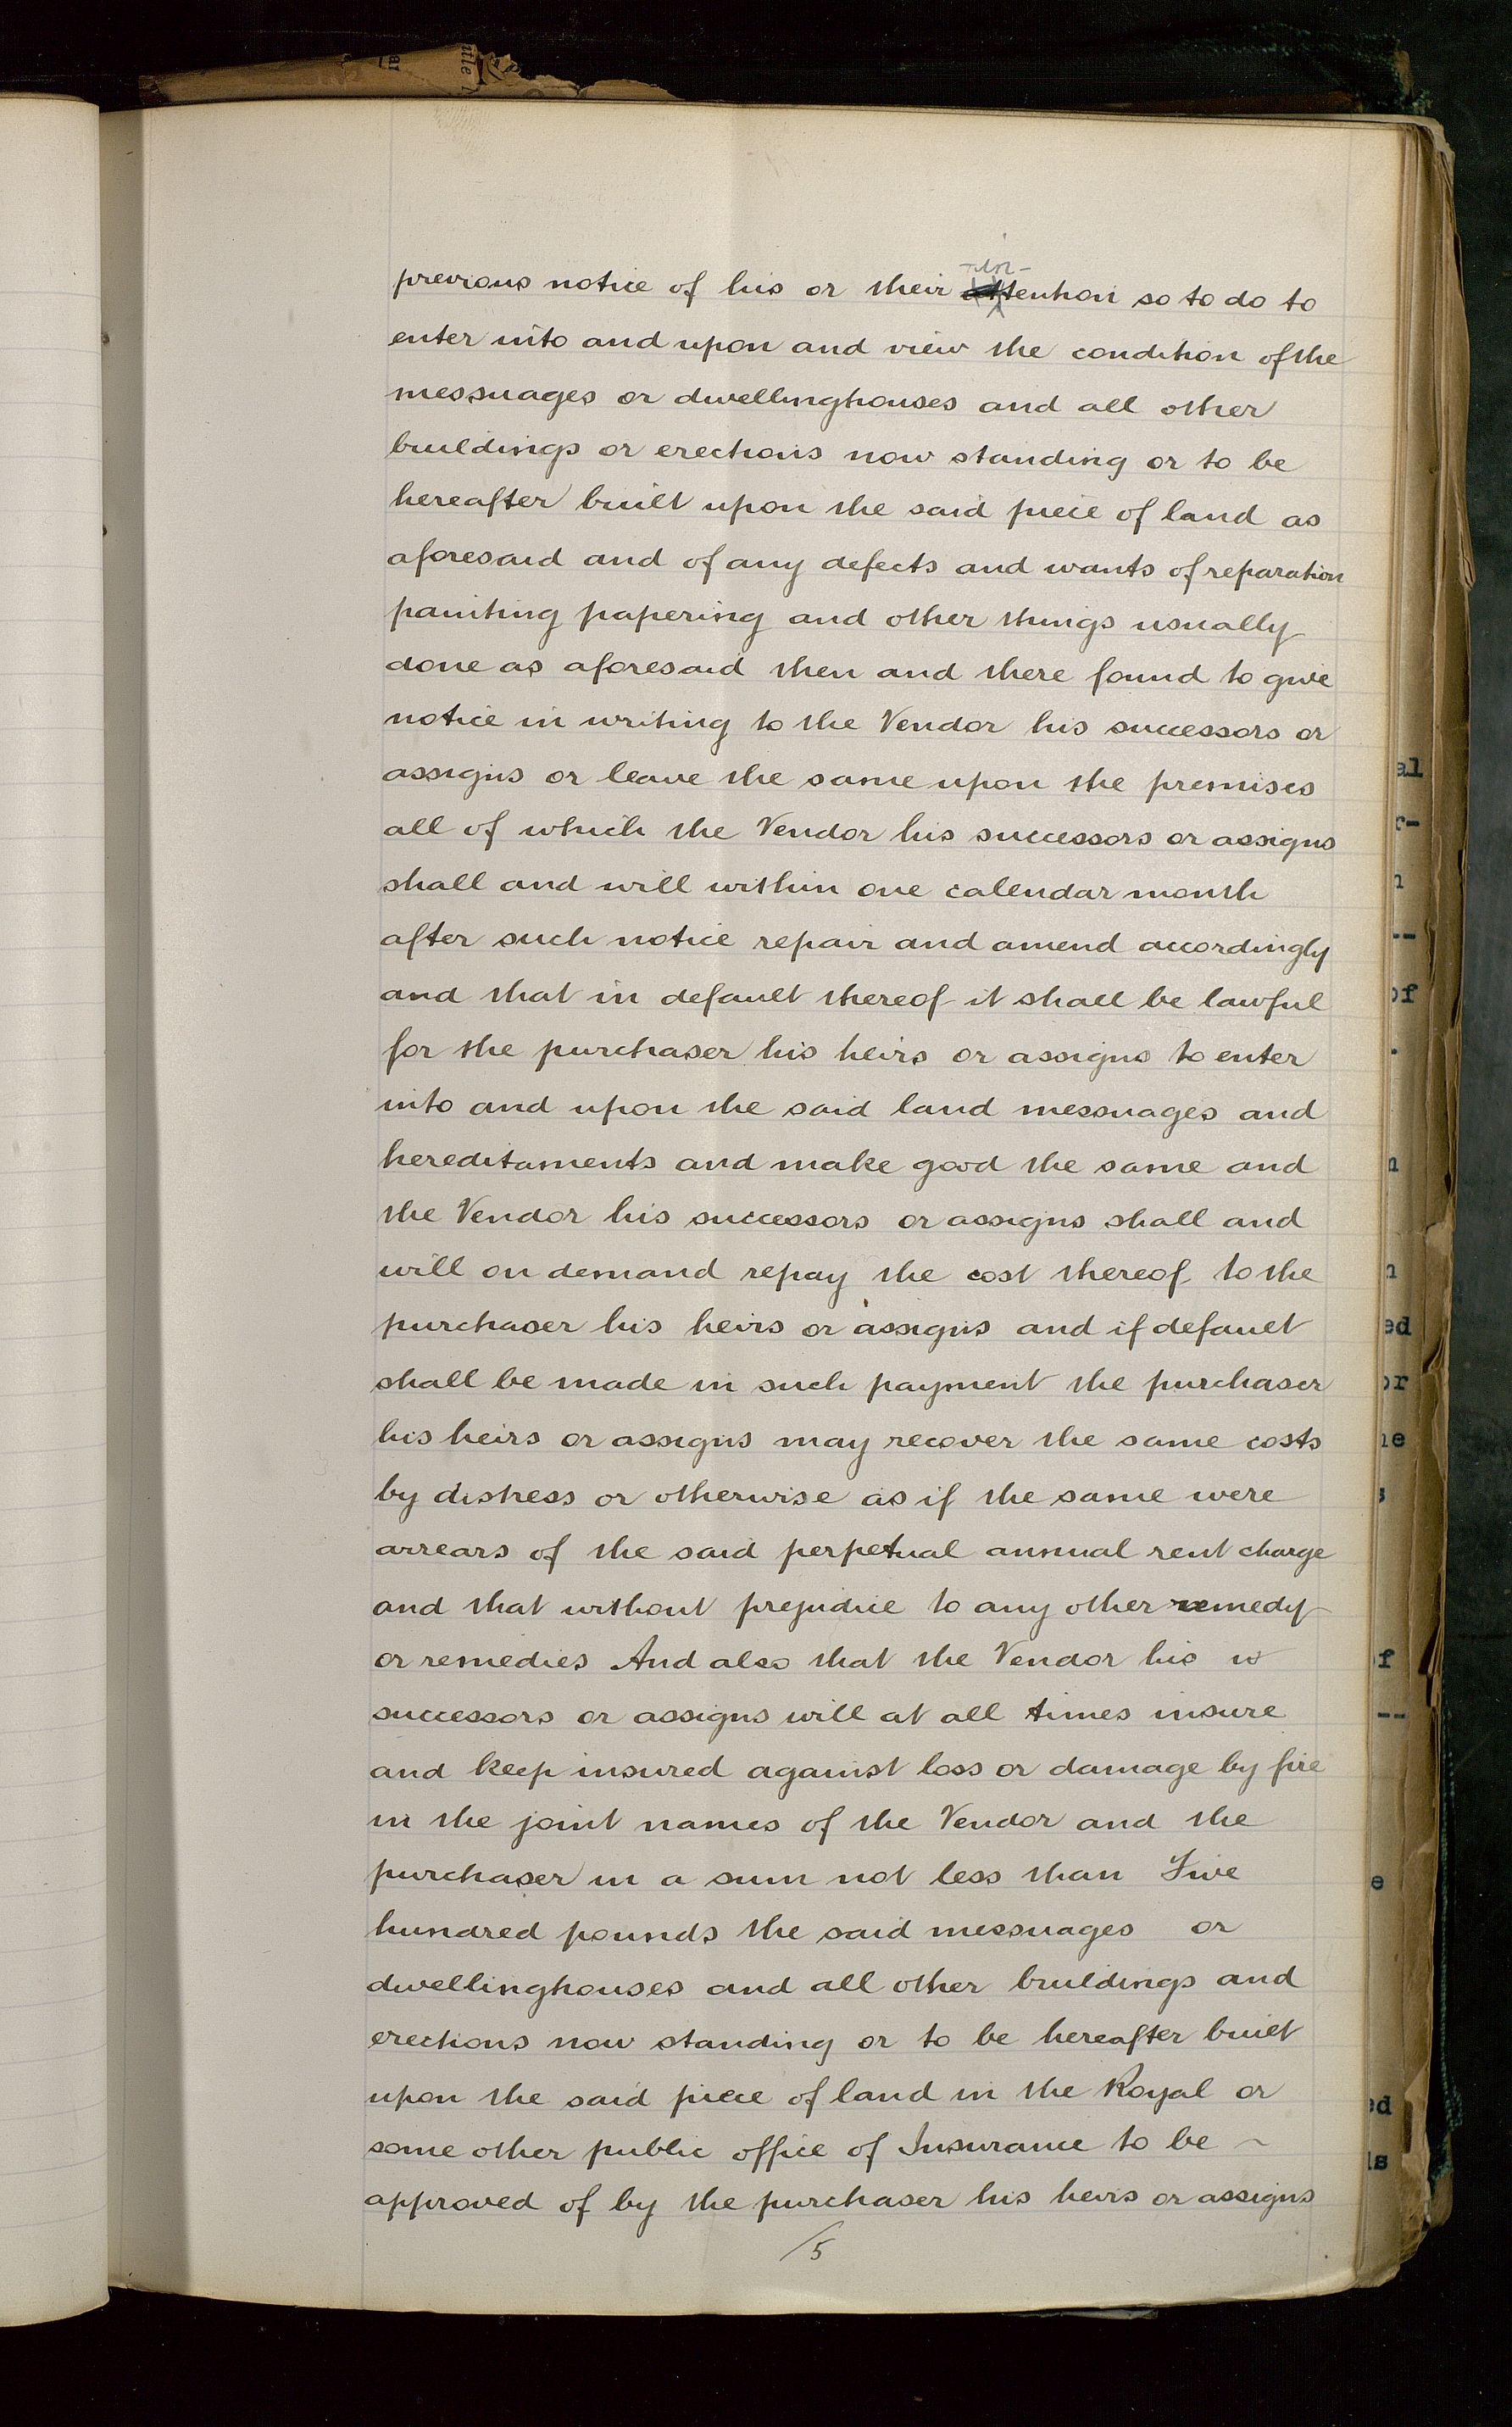 previous notice of his or their intention so to do to
enter into and upon and view the condition of the
messuages or dwellinghouses and all other
buildings or erections now standing or to be
hereafter built upon the said piece of land as
aforesaid and of any defects and wants of reparation
painting papering and other things usually
done as aforesaid then and there found to give
notice in writing to the Vendor his successors or
assigns or leave the same upon the premises
all of which the Vendor his successors or assigns
shall and will within one calendar month
after such notice repair and amend accordingly
and that in default thereof it shall be lawful
for the purchaser his heirs or assigns to enter
into and upon the said land messuages and
hereditaments and make good the same and
the Vendor his successors or assigns shall and
will on demand repay the cost thereof to the
purchaser his heirs or assigns and if default
shall be made in such payment the purchaser
his heirs or assigns may recover the same costs
by distress or otherwise as if the same were
arrears of the said perpetual annual rent charge
and that without prejudice to any other remedy
or remedies And also that the Vendor his
successors or assigns will at all times insure
and keep insured against loss or damage by fire
in the joint names of the Vendor and the
purchaser in a sum not less than Five
hundred pounds the said messuages or
dwellinghouses and all other buildings and
erections now standing or to be hereafter built
upon the said piece of land in the Royal or
some other public office of Insurance to be ~
approved of by the purchaser his heirs or assigns
/5